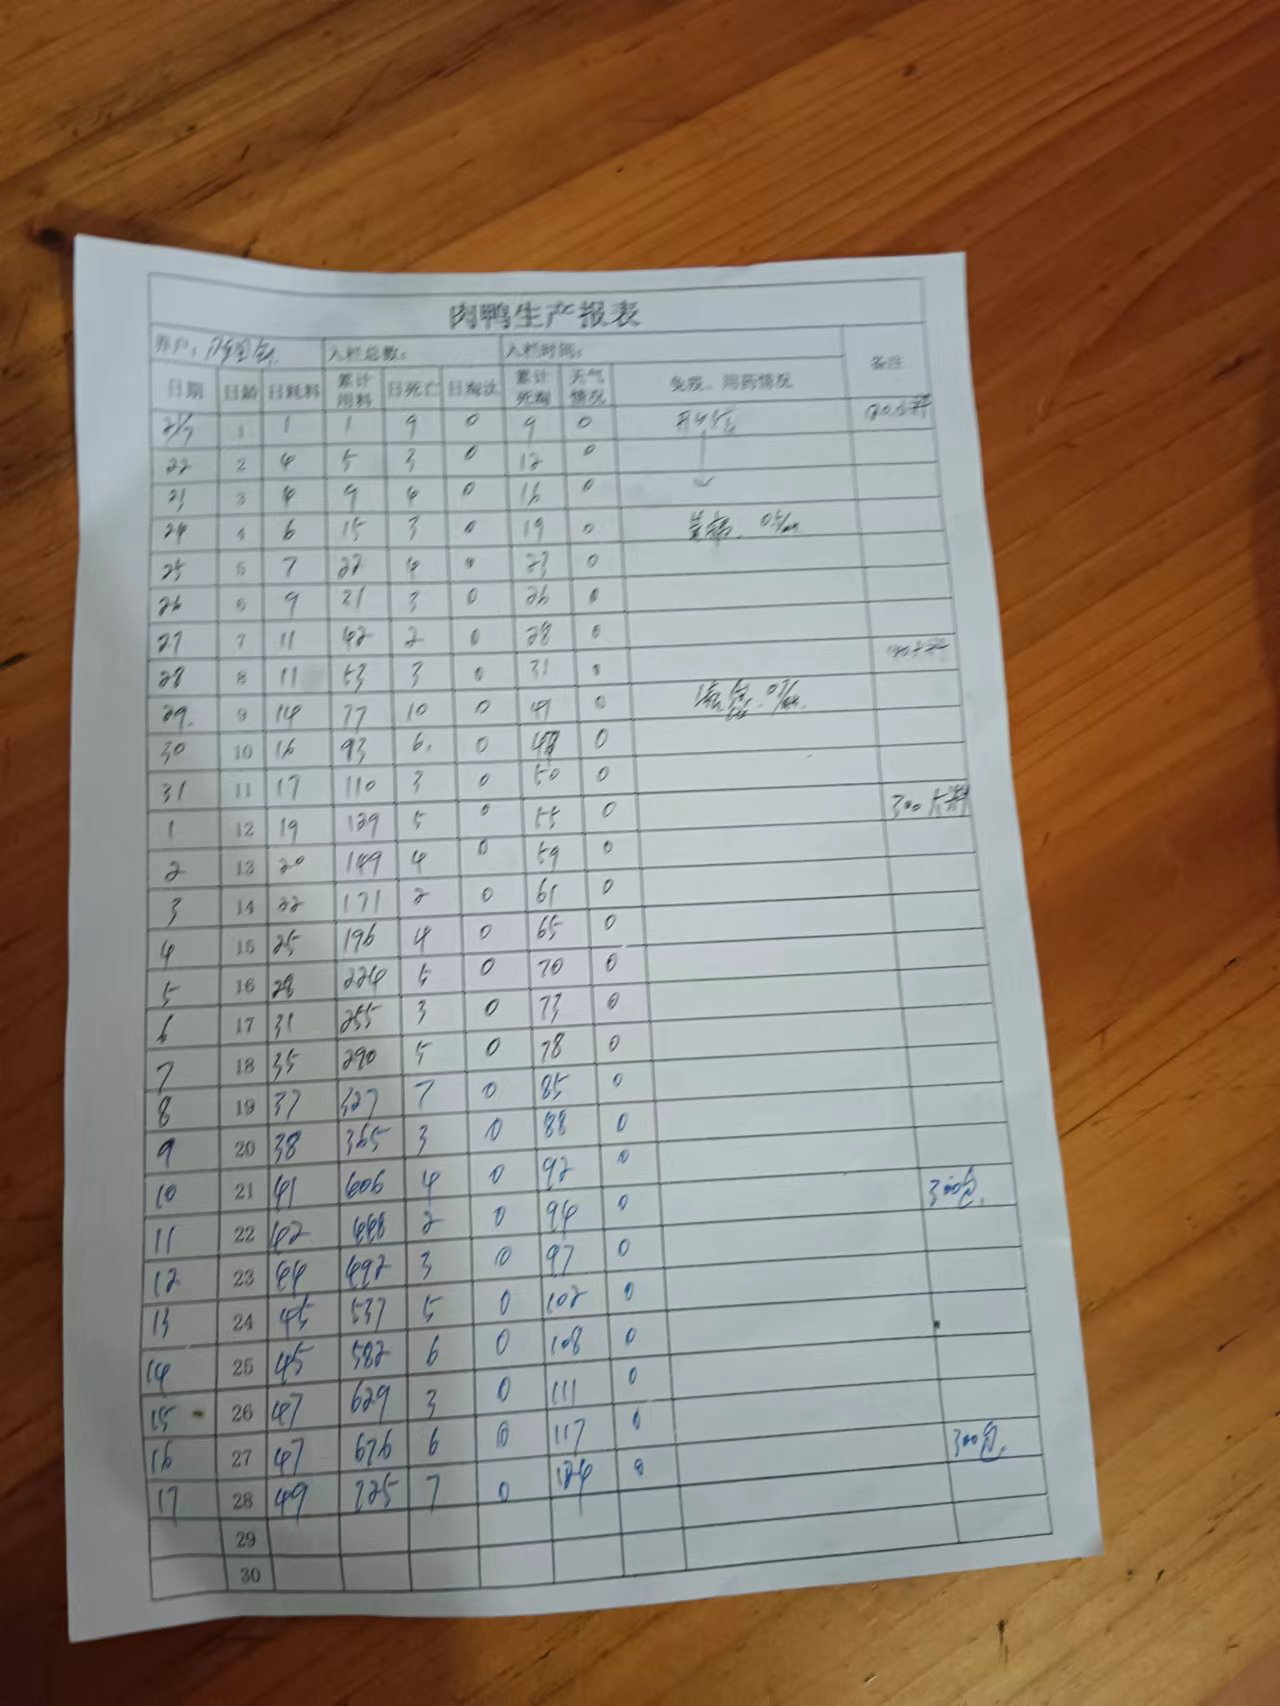 肉鸭生产报表
养户： 入栏总数： 入栏时间： 备注
日期 日龄 日耗料 累计用料 日死亡 日淘汰 累计死淘 天气情况 免疫、用药情况
21/7 1 1 1 9 0 9 0 开口药
22 2 4 5 3 0 12 0
23 3 4 9 4 0 16 0
24 4 6 15 3 0 19 0
25 5 7 22 4 0 23 0
26 6 9 31 3 0 26 0
27 7 11 42 2 0 28 0
28 8 11 53 3 0 31 0
29. 9 14 77 10 0 41 0
30 10 16 93 6. 0 0
31 11 17 110 3 0 50 0
1 12 19 129 5 0 55 0 300大料
2 13 20 149 4 0 59 0
3 14 22 171 2 0 61 0
4 15 25 196 4 0 65 0
5 16 28 224 5 0 70 0
6 17 31 255 3 0 73 0
7 18 35 290 5 0 78 0
8 19 37 327 7 0 85 0
9 20 38 365 3 0 88 0
10 21 41 406 4 0 92 0 300包.
11 22 42 448 2 0 94 0
12 23 44 492 3 0 97 0
13 24 45 537 5 0 102 0
14 25 45 582 6 0 108 0
15 26 47 629 3 0 111 0
16 27 47 676 6 0 117 0 300包.
17 28 49 725 7 0 124 0
29
30